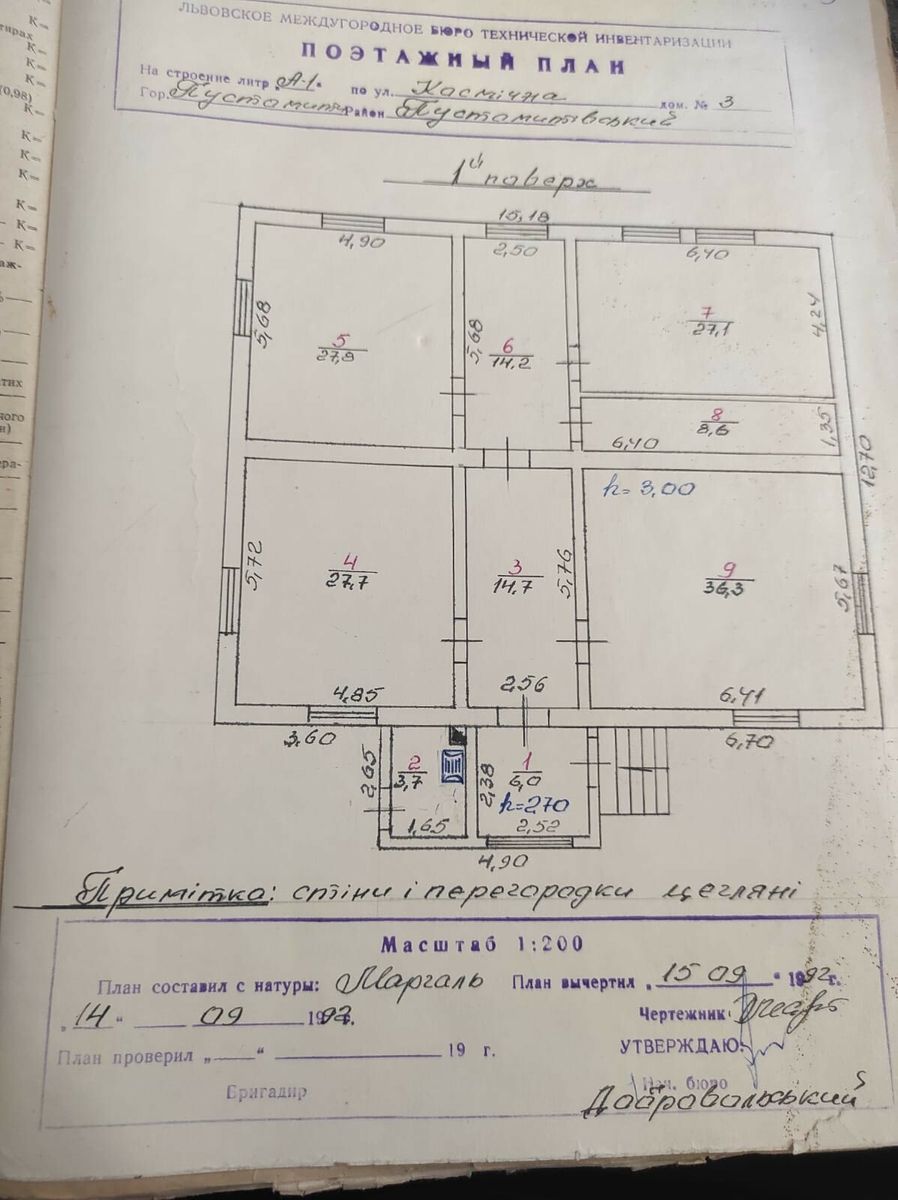 ЛЬВОВСКОЕ МЕЖДУГОРОДНОЕ БЮРО ТЕХНИЧЕСКОЙ ИНВЕНТАРИЗАЦИИ
ПОЭТАЖНЫЙ ПЛАН
На строение литр „А-1" по ул. Касмічна дом. № 3
Гор. Пустомити Район Пустомитівський
1й поверх
15,18
4,90
2,50
6,40
5,68
5
27,8
5,68
6
14,2
7
27,1
4,24
8
8,6
6,40
1,35
12,70
h= 3,00
5,72
4
27,7
3
14,7
5,76
9
36,3
5,67
4,85
2,56
6,41
3,60
6,70
2,65
2
3,7
2,38
1
6,0
h=270
1,65
2,52
4,90
Примітка: стіни і перегородки цегляні
Масштаб 1:200
План составил с натуры: Маргаль План вычертил „15 09 " 1992г.
„14" 09 1992г.
Чертежник
План проверил „ " 19 г.
УТВЕРЖДАЮ:
Бригадир
Нач. бюро
Добровольський
К=
К=
К=
К=
(0,98)
К=
К=
К=
К=
К=
К=
К=